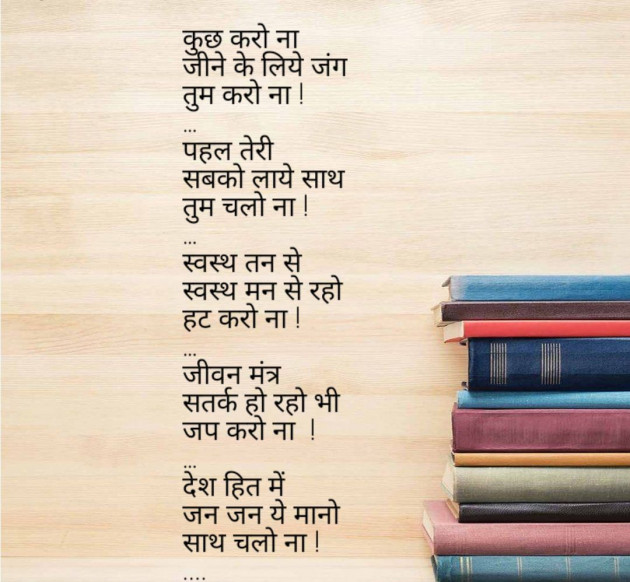 कुछ करो ना
जीने के लिये जंग
तुम करो ना !
...
पहल तेरी
सबको लाये साथ
तुम चलो ना !
...
स्वस्थ तन से
स्वस्थ मन से रहो
हट करो ना !
...
जीवन मंत्र
सतर्क हो रहो भी
जप करो ना !
...
देश हित में
जन जन ये मानो
साथ चलो ना !
....